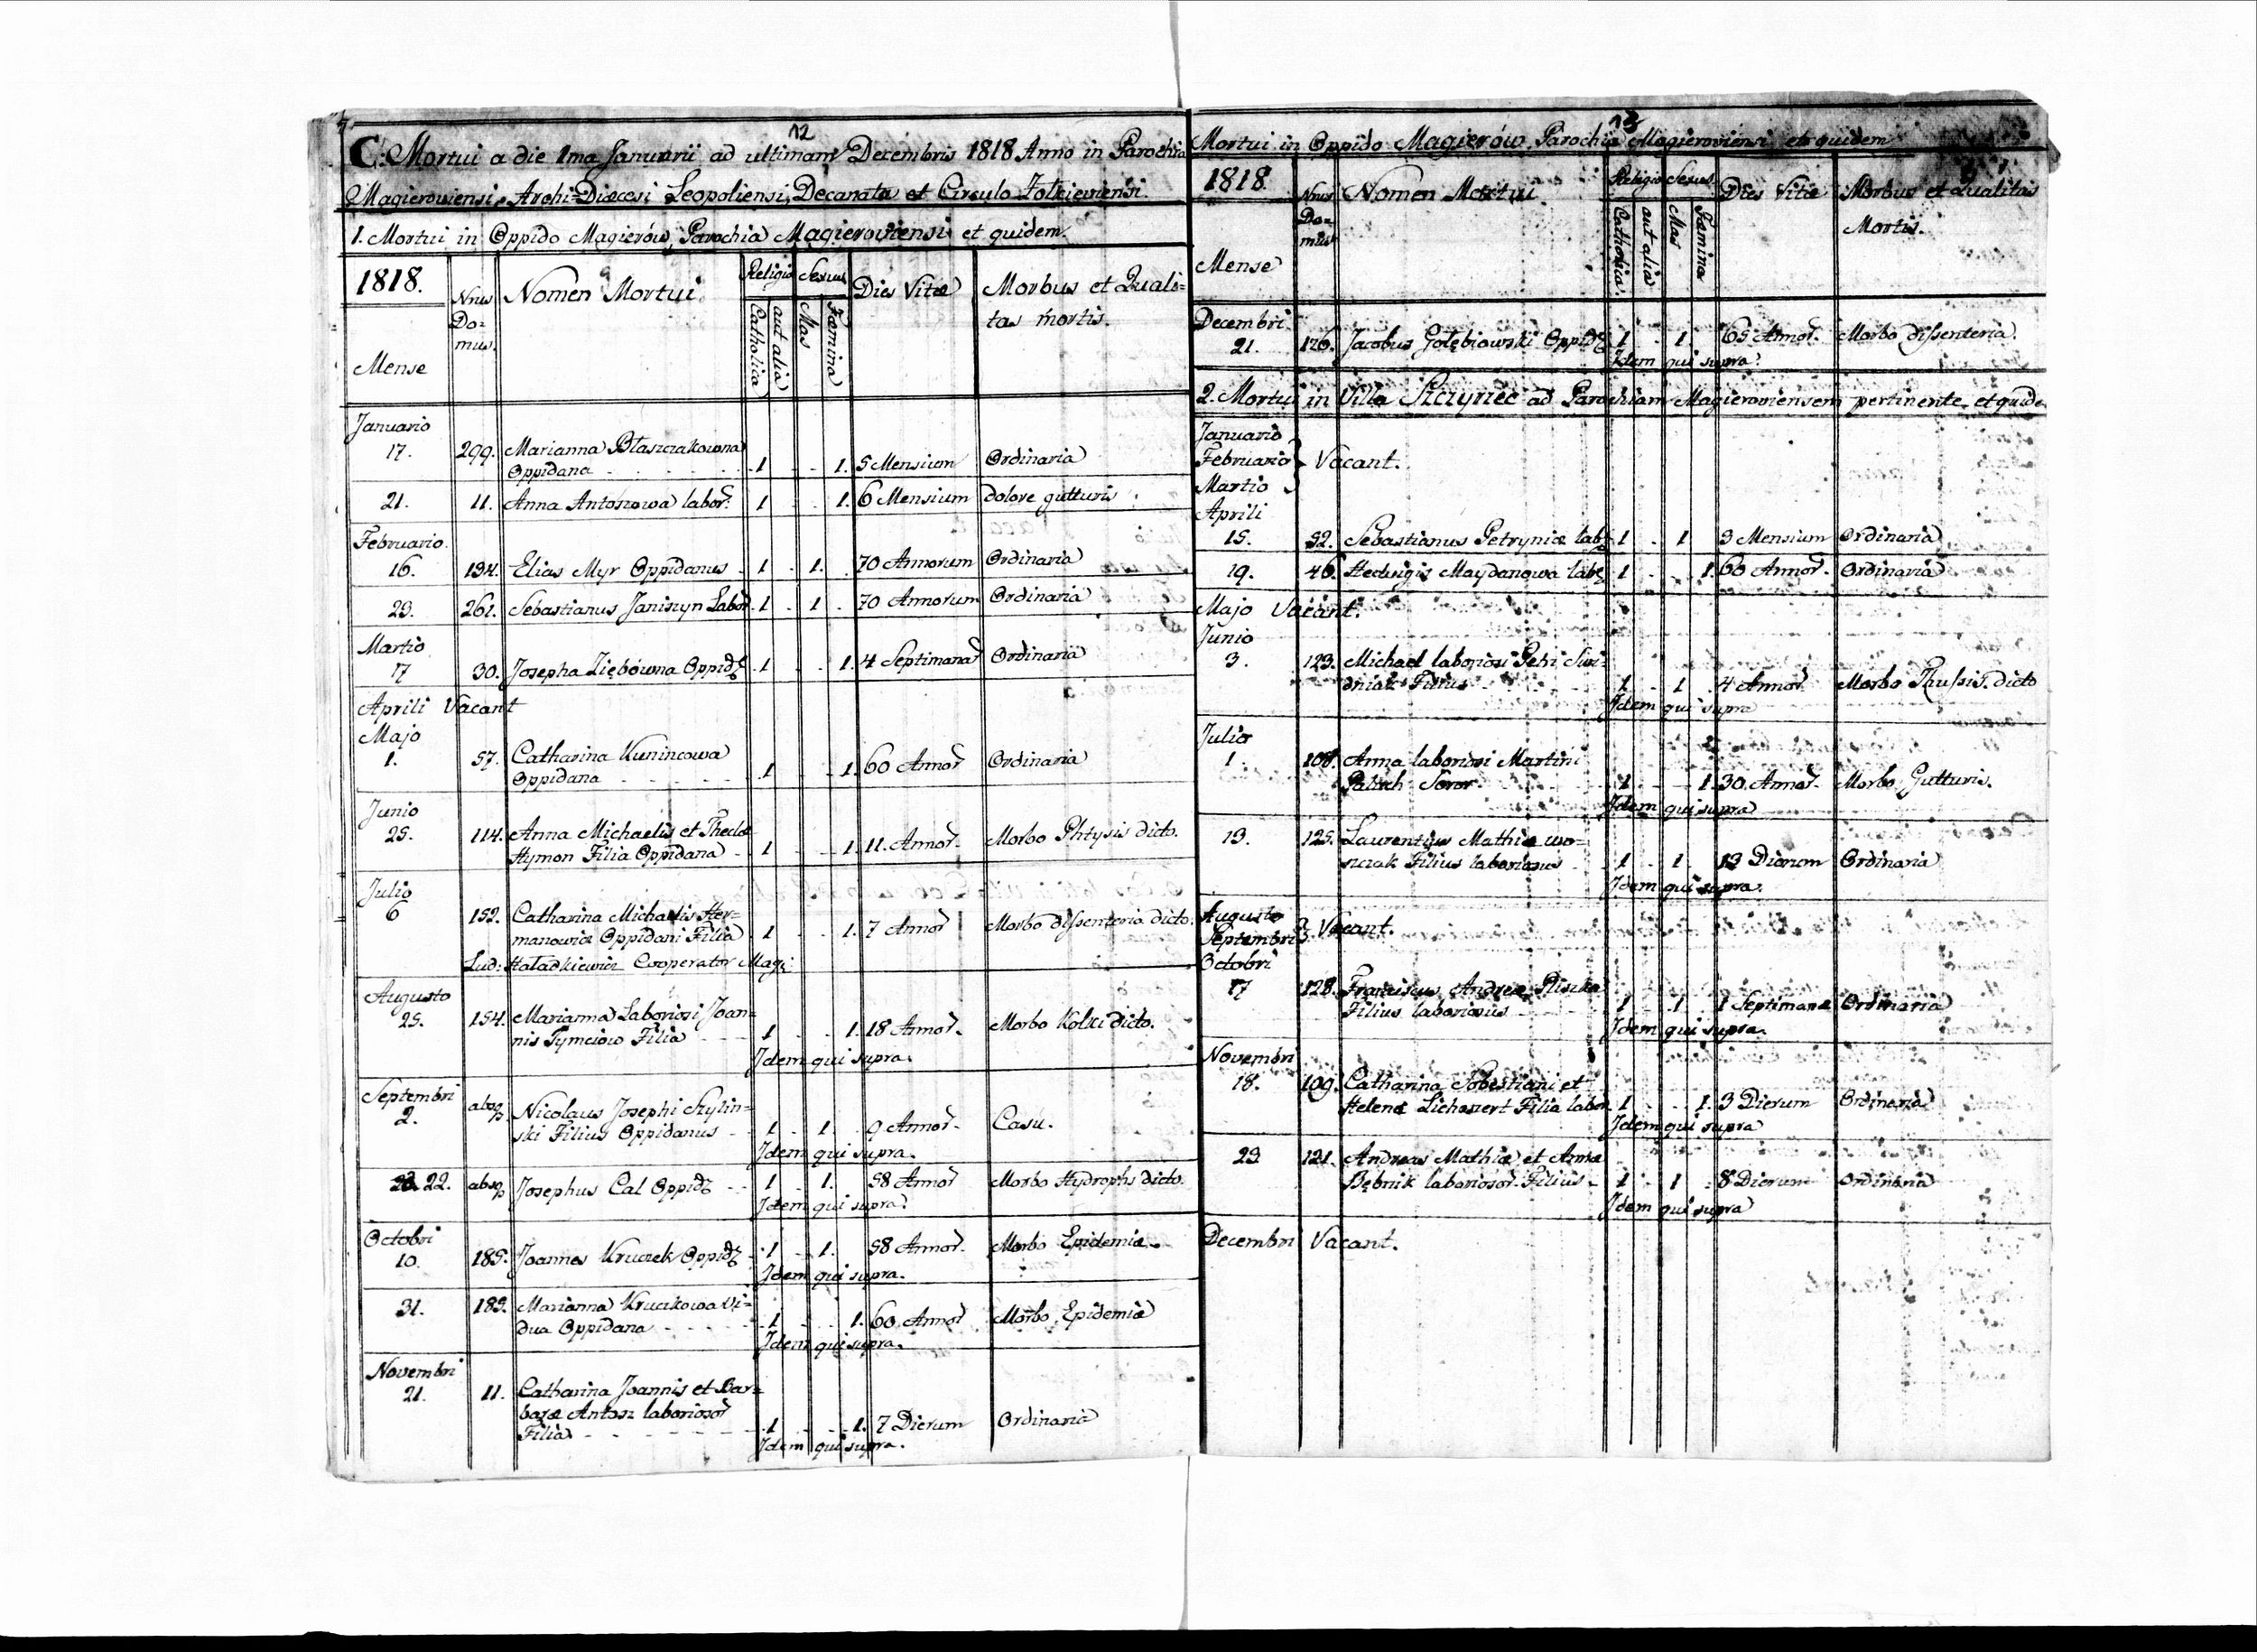 12
C. Mortui a die 1ma Januarii ad ultimam Decembris 1818 Anno in Parochia
Magieroviensi, Archi-Diæcesi Leopoliensi, Decanatu et Circulo Zolkieviensi.
1. Mortui in Oppido Magierów, Parochia Magieroviensi et quidem.
1818. Nrus Domus. Nomen Mortui Religio Sexus Dies Vitæ Morbus et Quali=
tas mortis.
Mense Catholica aut alia Mas Fæmina
Januario
17. 299. Marianna Błaszczakowna
Oppidana 1 1. 5 Mensium Ordinaria
21. 11. Anna Antoszowa labor. 1 1. 6 Mensium dolore gutturis
Februario
16. 194. Elias Myr Oppidanus 1 1. 70 Annorum Ordinaria
23. 261. Sebastianus Janiszyn Labor. 1 1 70 Annorum Ordinaria
Martio
17 30. Josepha Ziębówna Oppid 1 1. 4 Septimanar Ordinaria
Aprili Vacant
Majo
1. 57. Catharina Kunincowa
Oppidana 1 1. 60 Annor Ordinaria
Junio
25. 114. Anna Michaelis et Theclæ
Hymon Filia Oppidana 1 1. 11. Annor. Morbo Phtysis dicto.
Julio
6 152. Catharina Michaelis Her=
manowicz Oppidani Filia 1 1. 7 Annor Morbo dissenteria dicto.
Lud: Haładkiewicz Cooperator Mag:
Augusto
25. 154. Marianna Laboriosi Joan=
nis Tymciow Filia 1 1. 18 Annor. Morbo Kolki dicto.
Idem qui supra.
Septembri
2. absq Nicolaus Josephi Szylin=
ski Filius Oppidanus 1 1. 9 Annor. Casu.
Idem qui supra.
22. absq Josephus Cal Oppid 1 1. 58 Annor Morbo Hydrophs dicto.
Idem qui supra.
Octobri
10. 185. Joannes Kruczek Oppid 1 1. 58 Annor. Morbo Epidemiæ
Idem qui supra.
31. 185. Marianna Kruczkowa Vi=
dua Oppidana 1 1. 60 Annor Morbo Epidemiæ
Idem qui supra.
Novembri
21. 11. Catharina Joannis et Bar=
baræ Antosz laboriosor
Filia. 1 1. 7 Dierum Ordinaria
Idem qui supra.
13
Mortui in Oppido Magierów, Parochia Magieroviensi et quidem
1818. Nrus Domus Nomen Mortui Religio Sexus Dies Vitæ Morbus et Qualitas
Mortis.
Mense Catholica aut alia Mas Fæmina
Decembri
21. 126. Jacobus Gołębiowski Oppid 1 1. 65 Annor. Morbo dissenteria.
Idem qui supra.
2. Mortui in Villa Szczyrzec ad Parochiam Magieroviensem pertinente et quide
Januario
Februario Vacant.
Martio
Aprili
15. 52. Sebastianus Petryniæ lab 1 1 3 Mensium Ordinaria
19. 46. Hedwigis Maydanowa lab 1 1. 60 Annor. Ordinaria
Majo Vacant.
Junio
3. 123. Michael laboriosi Petri Swi=
dniak Filius 1 1 4 Annor. Morbo Thussis dicto
Idem qui supra
Julio
1. 108. Anna laboriosi Martini
Soror. 1 1. 30 Annor. Morbo Gutturis.
Idem qui supra
13. 125. Laurentius Mathiæ Wo=
szczak Filius laboriosus 1 1 13 Dierum Ordinaria
Idem qui supra.
Augusto
Septembri Vacant.
Octobri
17 128. Franciscus Andreæ Pliszka
Filius laboriosus 1 1 1 Septimanæ Ordinaria
Idem qui supra.
Novembri
18. 109. Catharina Sobestiani et
Helenæ Lichanert Filia labor 1 1. 3 Dierum Ordinaria
Idem qui supra
23 121. Andreas Mathiæ et Annæ
Bębnik laboriosor. Filius 1 1 8 Dierum Ordinaria
Idem qui supra
Decembri Vacant.